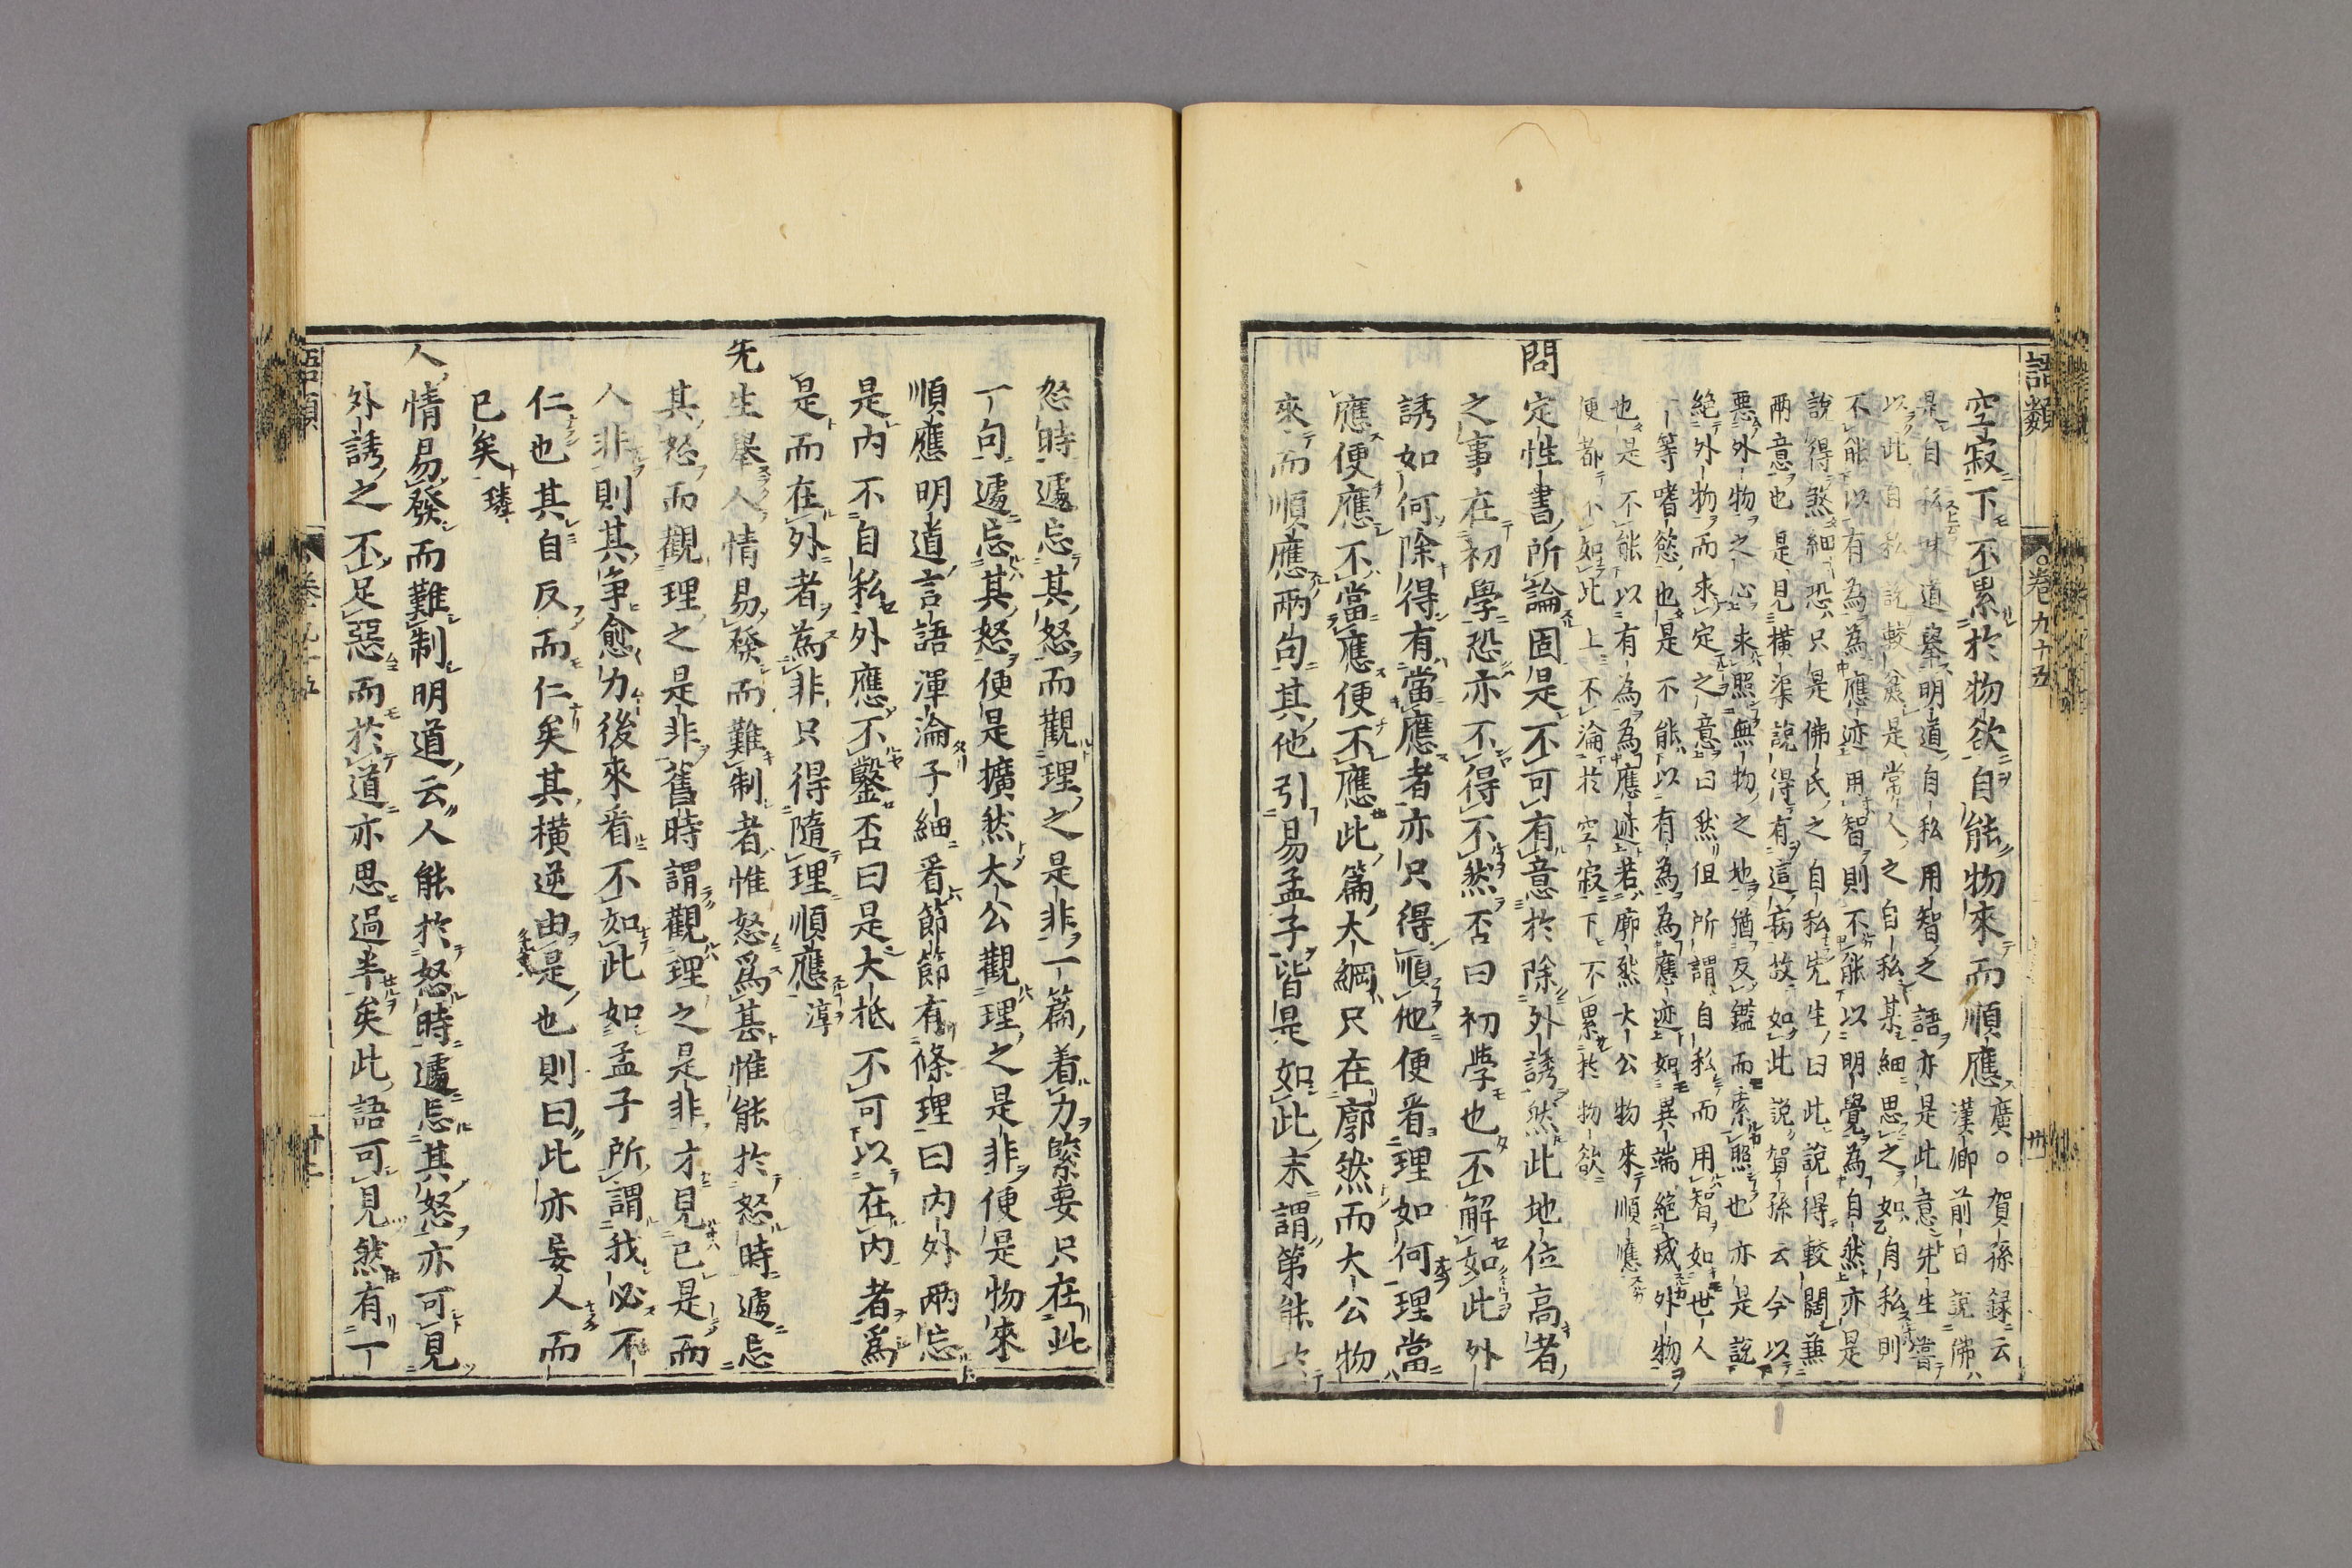 語類
○卷九十五
卅一
空寂下不累於物欲自能物來而順應廣○賀孫録云
漢卿前日說佛
是自私味道舉明道自私用智之語亦是此意先生嘗
以此自私說較麄是常人之自私某細思之如自私則
不能以有為為應迹用智則不能以明覺為自然亦是
說得煞細恐只是佛氏之自私先生曰此說得較闊兼
兩意也是見橫渠說得有這病故如此說賀孫云今以
惡外物之心來照無物之地猶反鑑而索照也亦是說
絕外物而求定之意曰然但所謂自私而用智如世人
一等嗜慾也是不能以有為為應迹如異端絕滅外物
也是不能以有為為應迹若廓然大公物來順應
便都不如此上不淪於空寂下不累於物欲
問定性書所論固是不可有意於除外誘然此地位高者
之事在初學恐亦不得不然否曰初學也不解如此外
誘如何除得有當應者亦只得順他便看理如何理當
應便應不當應便不應此篇大綱只在廓然而大公物
來而順應兩句其他引易孟子皆是如此末謂第能於
怒時遽忘其怒而觀理之是非一篇着力緊要只在此
一句遽忘其怒便是擴然大公觀理之是非便是物來
順應明道言語渾淪子細看節節有條理曰內外兩忘
是內不自私外應不鑿否曰是大抵不可以在內者爲
是而在外者為非只得隨理順應淳
先生舉人情易發而難制者惟怒爲甚惟能於怒時遽忘
其怒而觀理之是非舊時謂觀理之是非才見已是而
人非則其爭愈力後來看不如此如孟子所謂我必不
仁也其自反而仁矣其橫逆由是也則曰此亦妄人而
已矣璘
人情易發而難制明道云人能於怒時遽忘其怒亦可見
外誘之不足惡而於道亦思過半矣此語可見然有一
語類
卷九十五